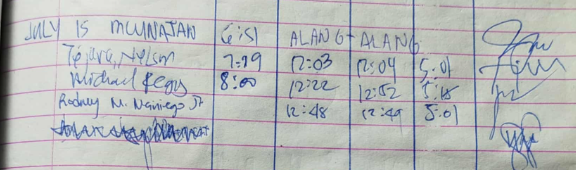 JULY 15 MCUNAJAN 6:51 ALANG-ALANG
Tejara, Nelson 7:19 12:03 12:04 5:01
Michael Regis 8:00 12:22 12:52 5:15
Rodney M. Naniego Jr 12:48 12:49 5:01